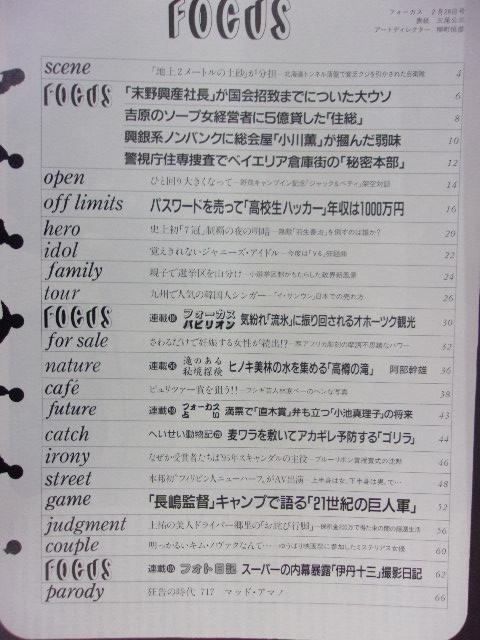 FOCUS
フォーカス 2月28日号
表紙 三尾公三
アートディレクター
scene 「地上2メートルの土砂」が分担―北海道トンネル落盤で貧乏クジを引かされた自衛隊 4
FOCUS 「末野興産社長」が国会招致までについた大ウソ 6
吉原のソープ女経営者に5億貸した「住総」 8
興銀系ノンバンクに総会屋「小川薫」が掴んだ弱味 10
警視庁住専捜査でベイエリア倉庫街の「秘密本部」 12
open ひと回り大きくなって―野茂キャンプイン記念「ジャック&ベティ」架空対談 14
off limits パスワードを売って「高校生ハッカー」年収は1000万円 16
hero 史上初「7冠」制覇の夜の明暗―「羽生善治」を倒すのは誰か? 20
idol 覚えきれないジャニーズ・アイドル―今度は「V6」 22
family 親子で選挙区を山分け―小選挙区制がもたらした政界新風景 24
tour 九州で人気の韓国人シンガー―「イ・サンウン」日本での売れ方 26
FOCUS 連載 フォーカスパビリオン 気紛れ「流氷」に振り回されるオホーツク観光 30
for sale さわるだけで妊娠する女性が続出!?―アフリカ彫刻の摩訶不思議なパワー 32
nature 連載 滝のある秘境探検 ヒノキ美林の水を集める「高樽の滝」 阿部幹雄 36
café ピュリツァー賞を狙う!!―フシギ芸人のヘンな写真 38
future 連載 フォーカス占い 満票で「直木賞」弁も立つ「小池真理子」の将来 43
catch へいせい動物記 麦ワラを敷いてアカギレ予防する「ゴリラ」 44
irony なぜか受賞者たちは'95年スキャンダルの主役―ブルーリボン賞授賞式の 46
street 本邦初“フィリピン人ニューハーフ”がAV出演―上半身は女、下半身は男、で… 48
game 「長嶋監督」キャンプで語る「21世紀の巨人軍」 52
judgment 上祐の美人ドライバー郷里の「お詫び行脚」 56
couple 明っかるいキム・ノヴァクなんて…―ゆうばり映画祭に参加したミステリアス女優 60
FOCUS 連載 フォト日記 スーパーの内幕暴露「伊丹十三」撮影日記 62
parody 狂告の時代 717 マッド・アマノ 66